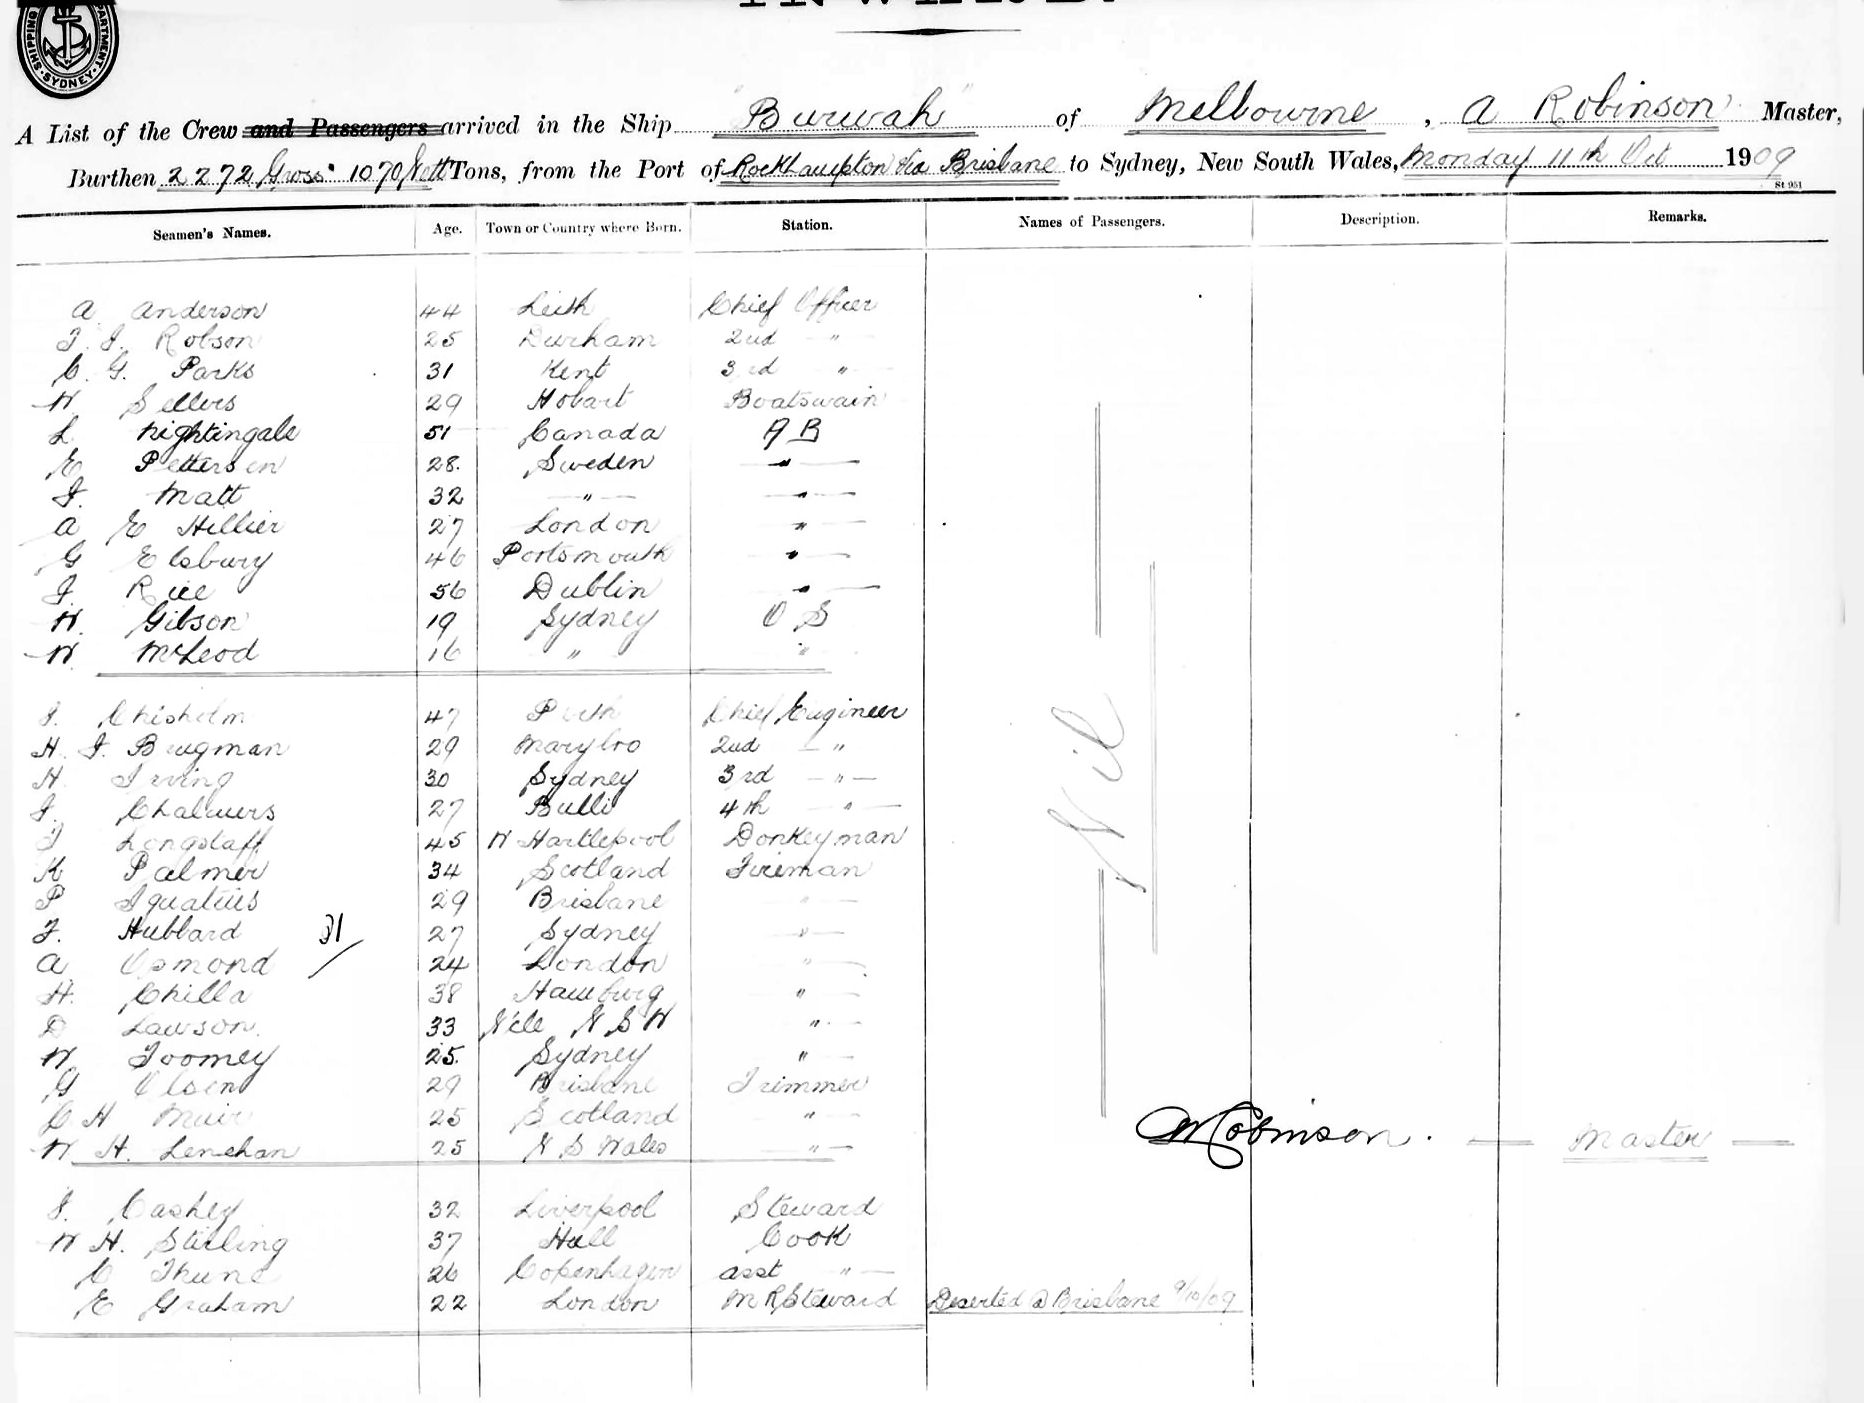 SHIPPING DEPARTMENT · SYDNEY ·
INWARD.
A List of the Crew and Passengers arrived in the Ship "Burwah" of Melbourne, A Robinson Master,
Burthen 2272 Gross 1070 Nett Tons, from the Port of Rockhampton via Brisbane to Sydney, New South Wales, Monday 11th Oct 1909
St 951
Seamen's Names. Age. Town or Country where Born. Station. Names of Passengers. Description. Remarks.
A Anderson 44 Leith Chief Officer
J. J. Robson 25 Durham 2nd "
C. G. Parks 31 Kent 3rd "
W Sellers 29 Hobart Boatswain
L Nightingale 51 Canada A B
E Pettersen 28. Sweden "
J. Matt 32 " "
A E Hillier 27 London "
G Elsbury 46 Portsmouth "
J. Rice 56 Dublin "
W. Gibson 19 Sydney O S
W McLeod 16 " "
J. Chisholm 47 Perth Chief Engineer
H. J. Brugman 29 Marybro 2nd "
H. Irving 30 Sydney 3rd "
J. Chalmers 27 Bulli 4th "
Nil
J Longstaff 45 W Hartlepool Donkeyman
K Palmer 34 Scotland Fireman
P Ignatius 29 Brisbane "
F. Hubbard 27 Sydney "
31
A Osmond 24 London "
H. Chilla 38 Hamburg "
D Lawson. 33 N'cle N S W "
W Toomey 25. Sydney "
G Olsen 29 Brisbane Trimmer
C H Muir 25 Scotland "
W H. Lenehan 25 N S Wales "
A Robinson. Master
J. Cashey 32 Liverpool Steward
W H. Stirling 37 Hull Cook
C Thune 26 Copenhagen asst "
E Graham 22 London M R Steward Deserted @ Brisbane 9/10/09